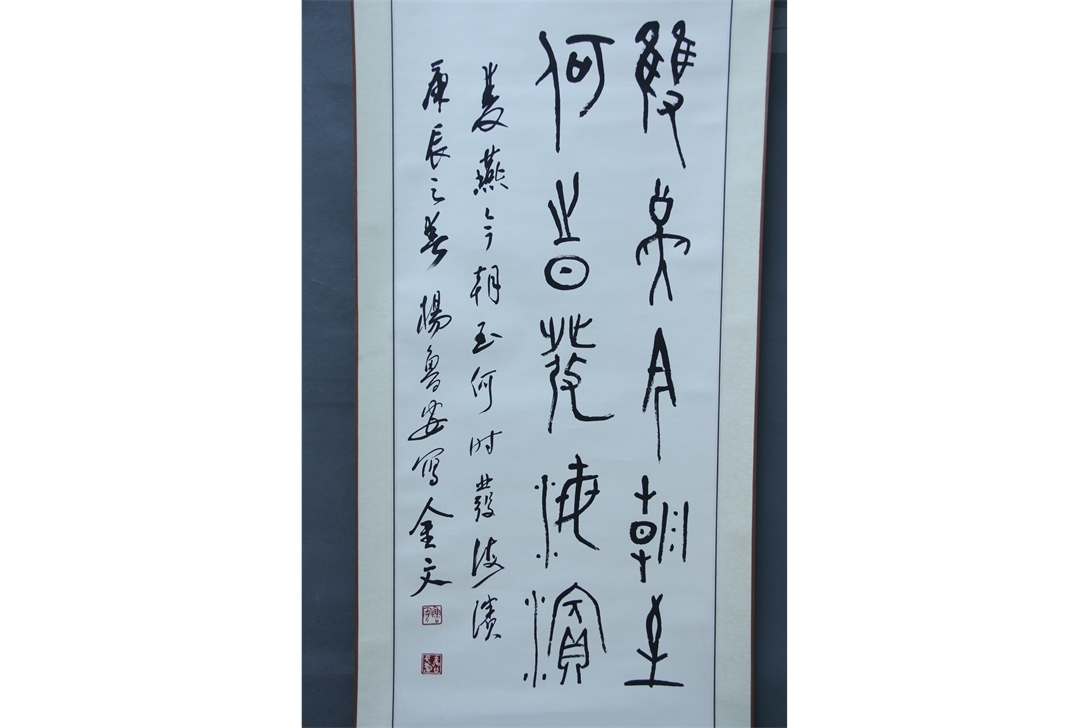 雙燕今朝至
何時發海濱
雙燕今朝至何時發海濱
庚辰之春楊魯安寫金文